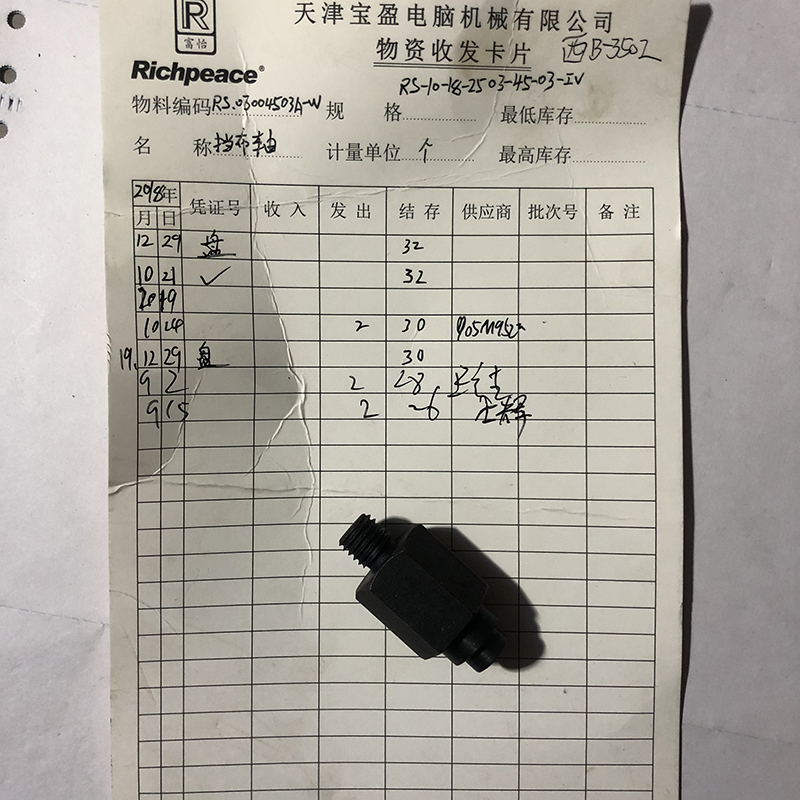 R
富怡
Richpeace®
天津宝盈电脑机械有限公司
物资收发卡片 西B-3502
RS-10-18-2503-45-03-IV
物料编码 RS.03004503A-W 规 格 最低库存
名 称 挡布轴 计量单位 个 最高库存
2018年 凭证号 收入 发出 结存 供应商 批次号 备注
月 日
12 29 盘 32
10 21 ✓ 32
2019
10 24 2 30
19.12 29 盘 30
9 2 2 28
9 15 2 26 王辉